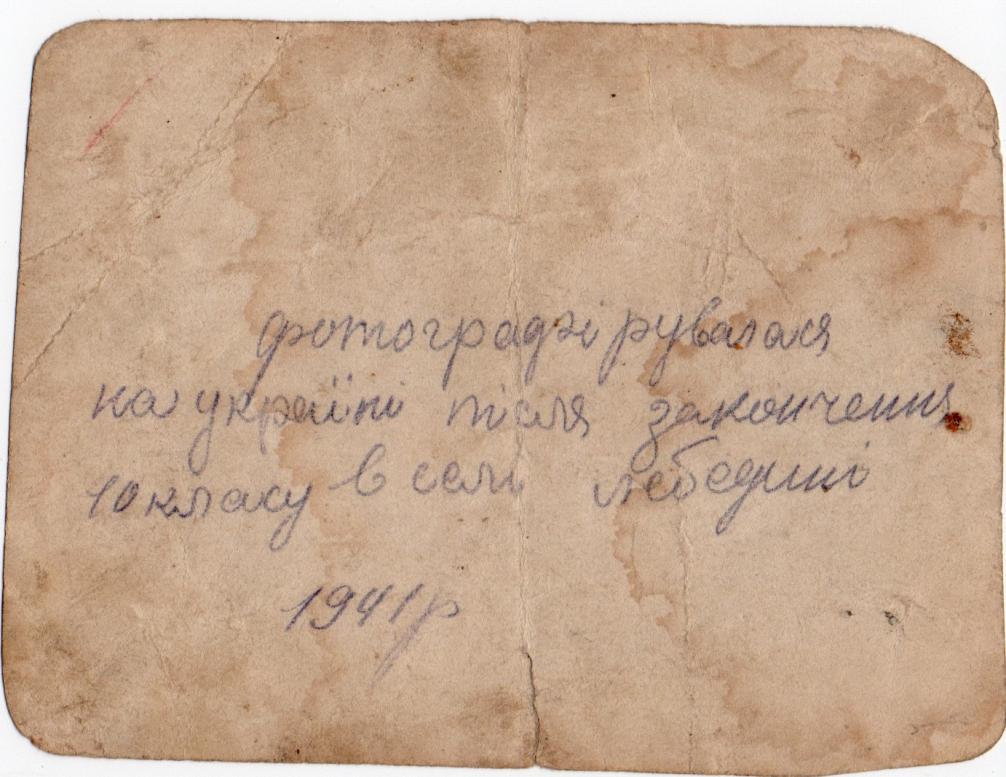 фотографірувалася
на україні після закінчення
10 класу в селі лебедині
1941р